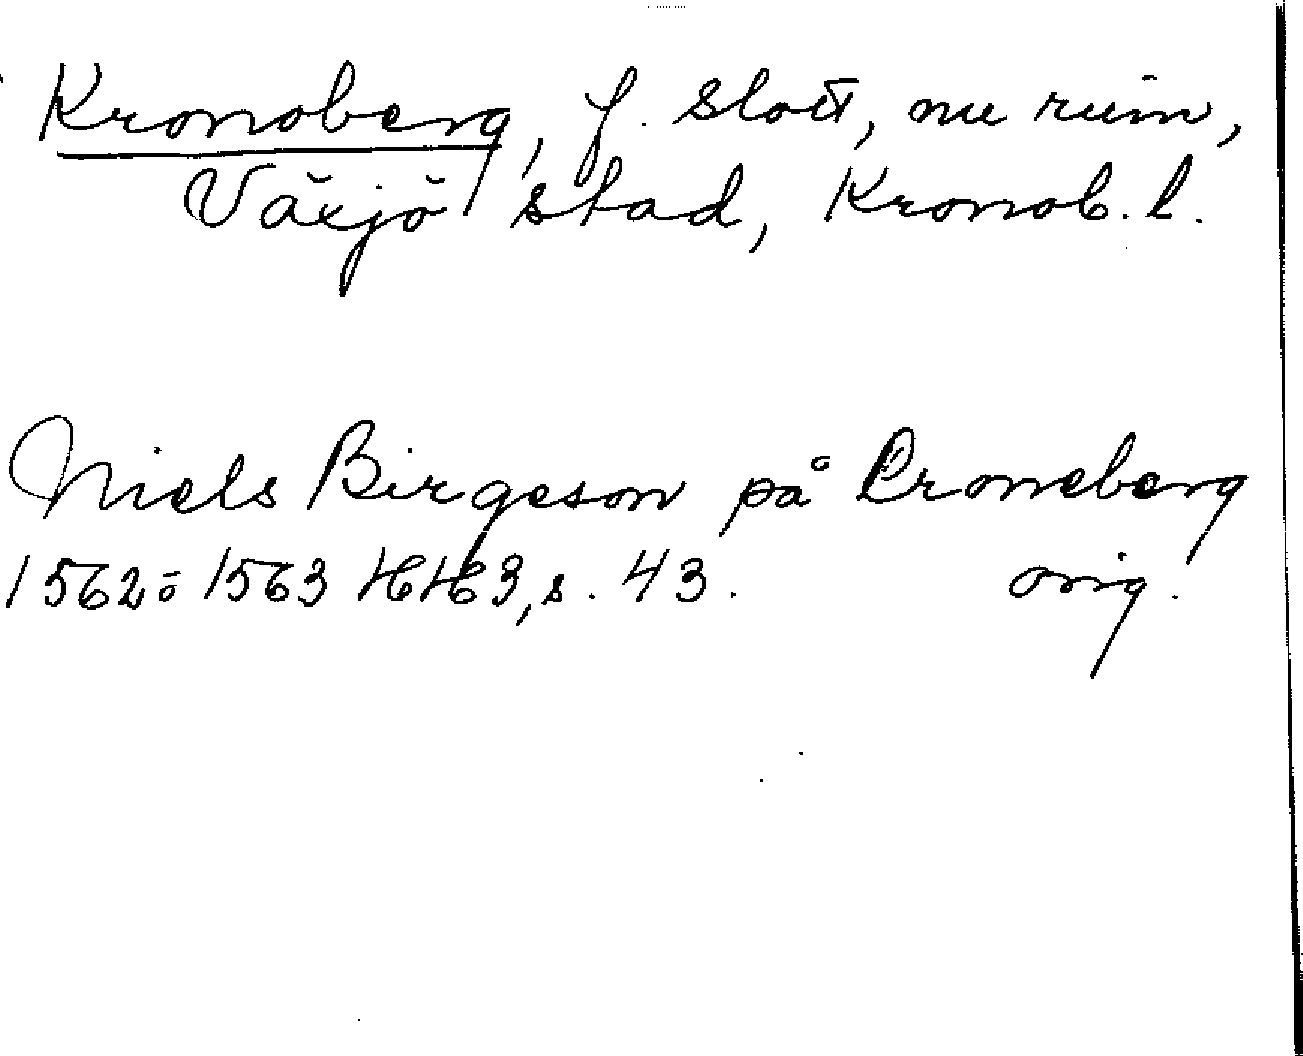 Kronoberg, f. slott, nu ruin,
Växjö stad, Kronob. l.
Niels Birgeson på Croneberg
1562-1563 HH 3, s. 43. orig.